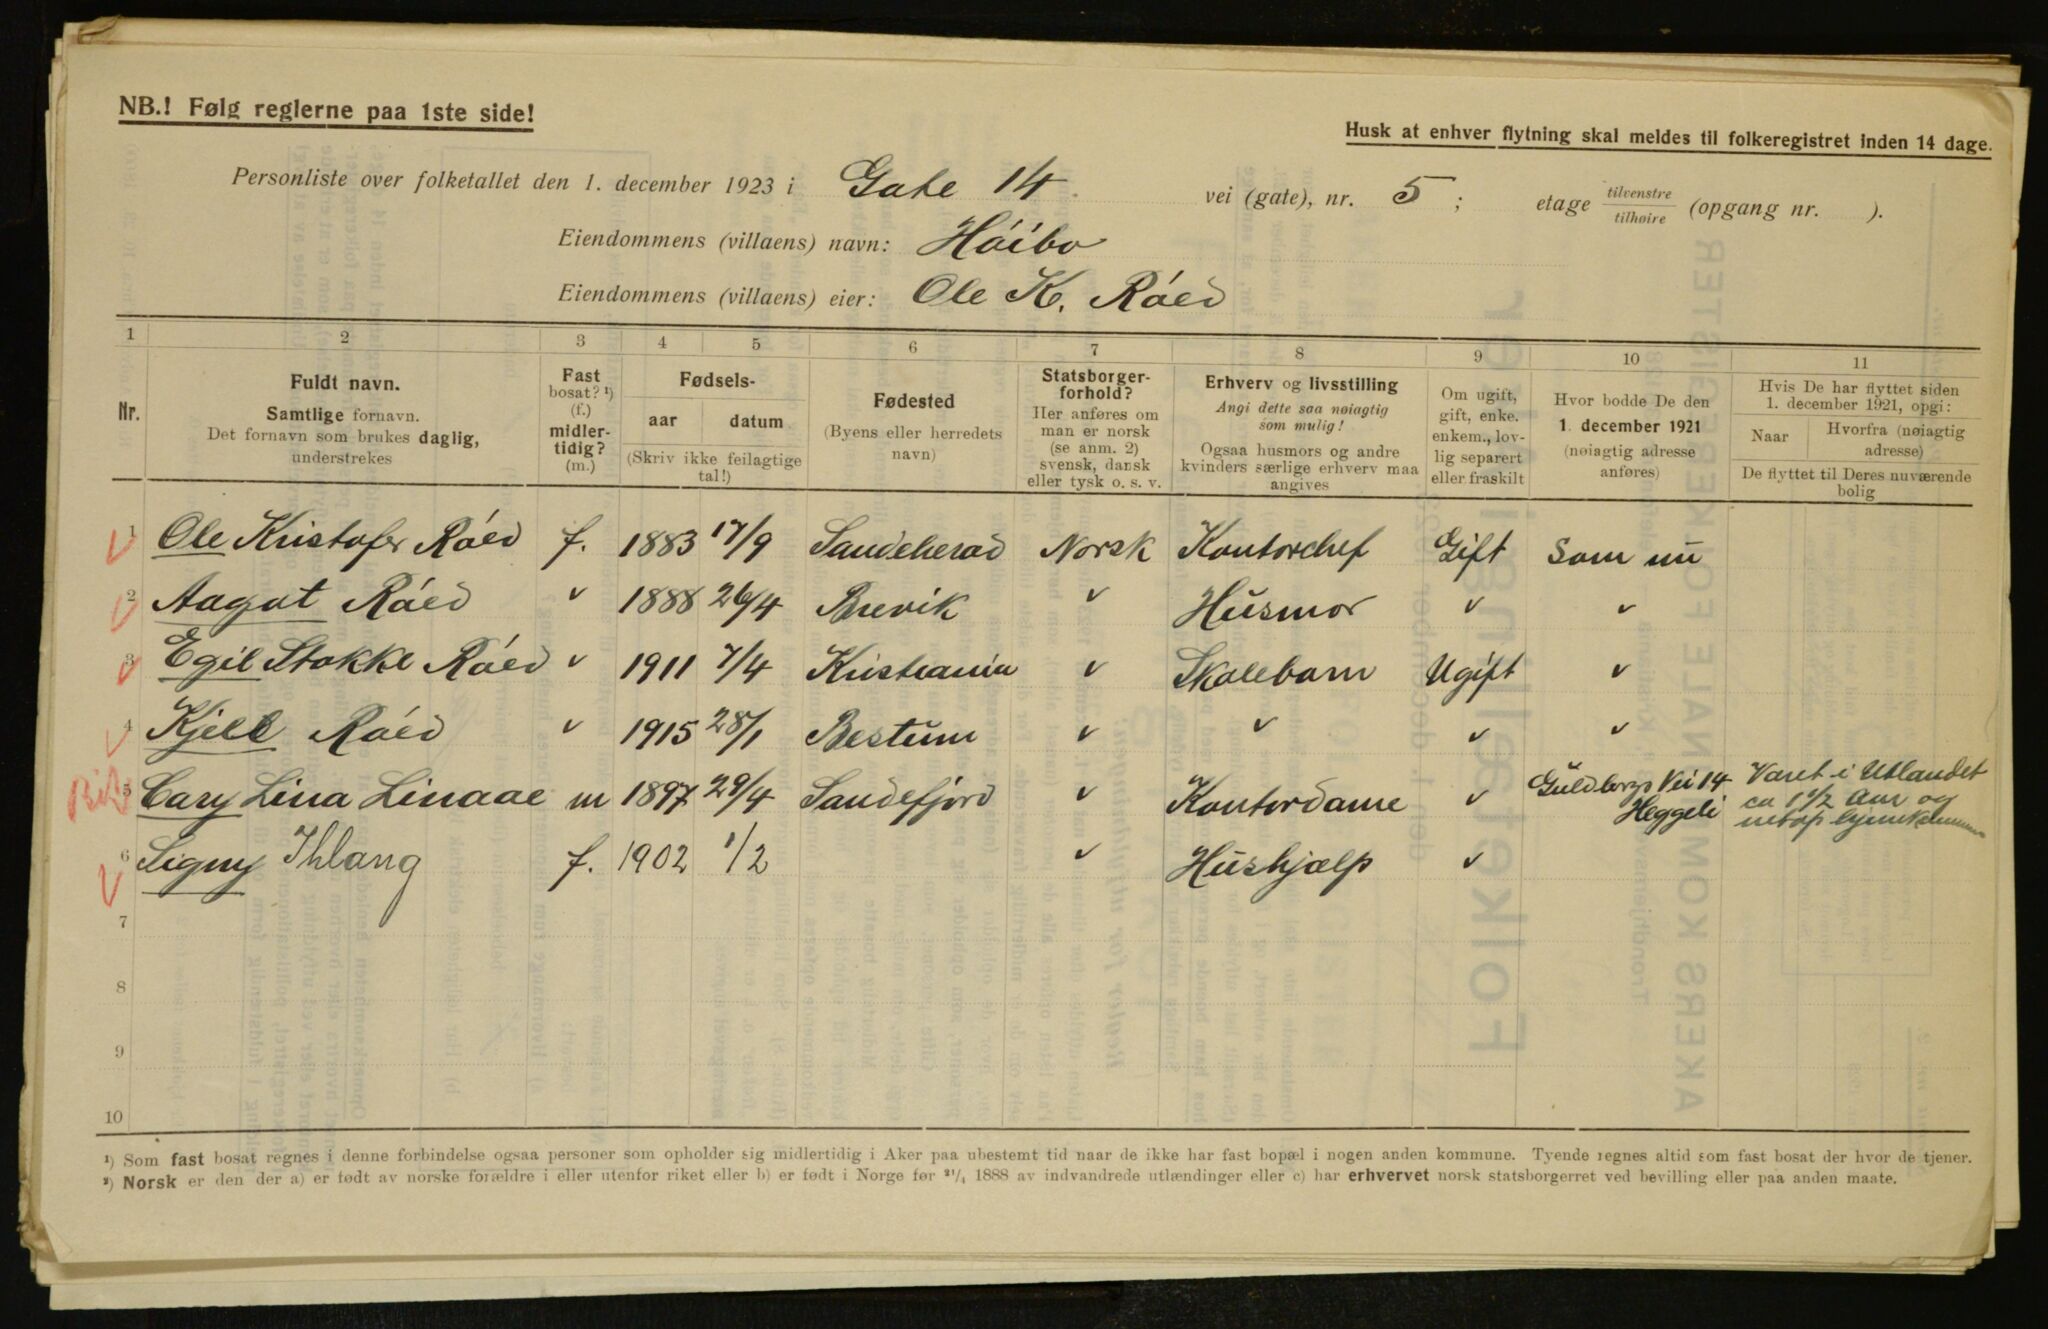 NB.! Følg reglerne paa 1ste side!
Husk at enhver flytning skal meldes til folkeregistret inden 14 dage.
Personliste over folketallet den 1. december 1923 i Gate 14 vei (gate), nr. 5; etage tilvenstre/tilhøire (opgang nr. ).
Eiendommens (villaens) navn: Höibo
Eiendommens (villaens) eier: Ole K. Röed
1 2 3 4 5 6 7 8 9 10 11
Nr.
Fuldt navn.
Samtlige fornavn.
Det fornavn som brukes daglig,
understrekes
Fast
bosat? ¹)
(f.)
midler-
tidig?
(m.)
Fødsels-
aar datum
(Skriv ikke feilagtige
tal!)
Fødested
(Byens eller herredets
navn)
Statsborger-
forhold?
Her anføres om
man er norsk
(se anm. 2)
svensk, dansk
eller tysk o. s. v.
Erhverv og livsstilling
Angi dette saa nøiagtig
som mulig!
Ogsaa husmors og andre
kvinders særlige erhverv maa
angives
Om ugift,
gift, enke.
enkem., lov-
lig separert
eller fraskilt
Hvor bodde De den
1. december 1921
(nøiagtig adresse
anføres)
Hvis De har flyttet siden
1. december 1921, opgi:
Naar
Hvorfra (nøiagtig
adresse)
De flyttet til Deres nuværende
bolig
1 Ole Kristofer Röed f. 1883 17/9 Sandeherad Norsk Kontorchef Gift Som nu
2 Aagot Röed " 1888 26/4 Brevik " Husmor " "
3 Egil Stokke Röed " 1911 7/4 Kristiania " Skolebarn Ugift "
4 Kjell Röed " 1915 28/1 Bestum " " " "
5 Cary Lina Linaae m 1897 29/4 Sandefjord " Kontordame " Guldbergs Vei 14 Heggeli Været i Utlandet ca 1 1/2 Aar og netop hjemkommen
6 Signy Ihlang f. 1902 1/2 " Hushjælp "
7
8
9
10
¹) Som fast bosat regnes i denne forbindelse ogsaa personer som opholder sig midlertidig i Aker paa ubestemt tid naar de ikke har fast bopæl i nogen anden kommune. Tyende regnes altid som fast bosat der hvor de tjener.
²) Norsk er den der a) er født av norske forældre i eller utenfor riket eller b) er født i Norge før ²¹/₄ 1888 av indvandrede utlændinger eller c) har erhvervet norsk statsborgerret ved bevilling eller paa anden maate.